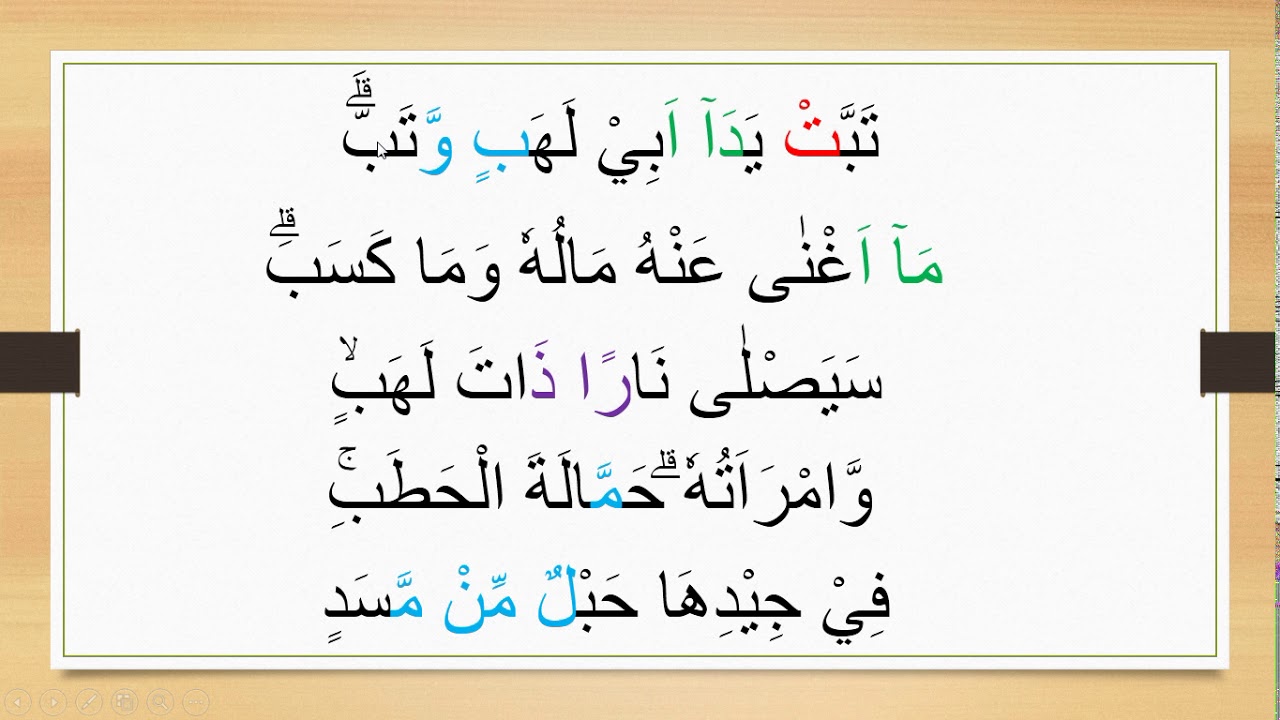 تَبَّتْ يَدَآ اَبِيْ لَهَبٍ وَّتَبَّۗ
مَآ اَغْنٰى عَنْهُ مَالُهٗ وَمَا كَسَبَۗ
سَيَصْلٰى نَارًا ذَاتَ لَهَبٍۙ
وَّامْرَاَتُهٗ ۗحَمَّالَةَ الْحَطَبِۚ
فِيْ جِيْدِهَا حَبْلٌ مِّنْ مَّسَدٍ